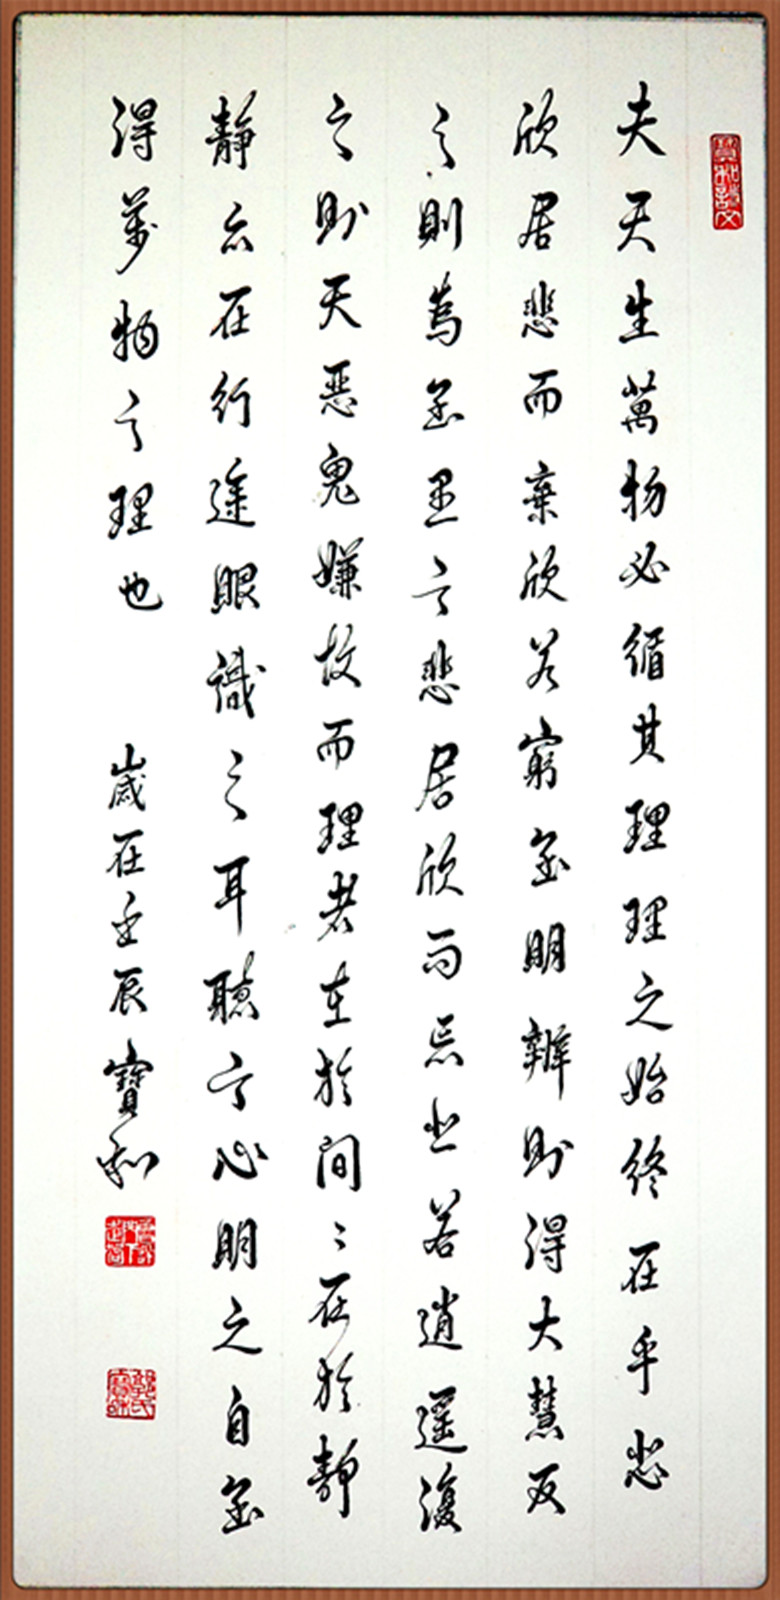 寶和詩文
夫天生萬物必循其理理之始終在乎悲
欣居悲而棄欣若窮至明辨則得大慧反
之則為至之悲居欣而忘若逍遥復
之則天惡鬼嫌故而理者在於間〻在於靜
靜亦在行途眼識之耳聽之心明之自至
得萬物之理也 歲在壬辰寶和
郭氏寶和